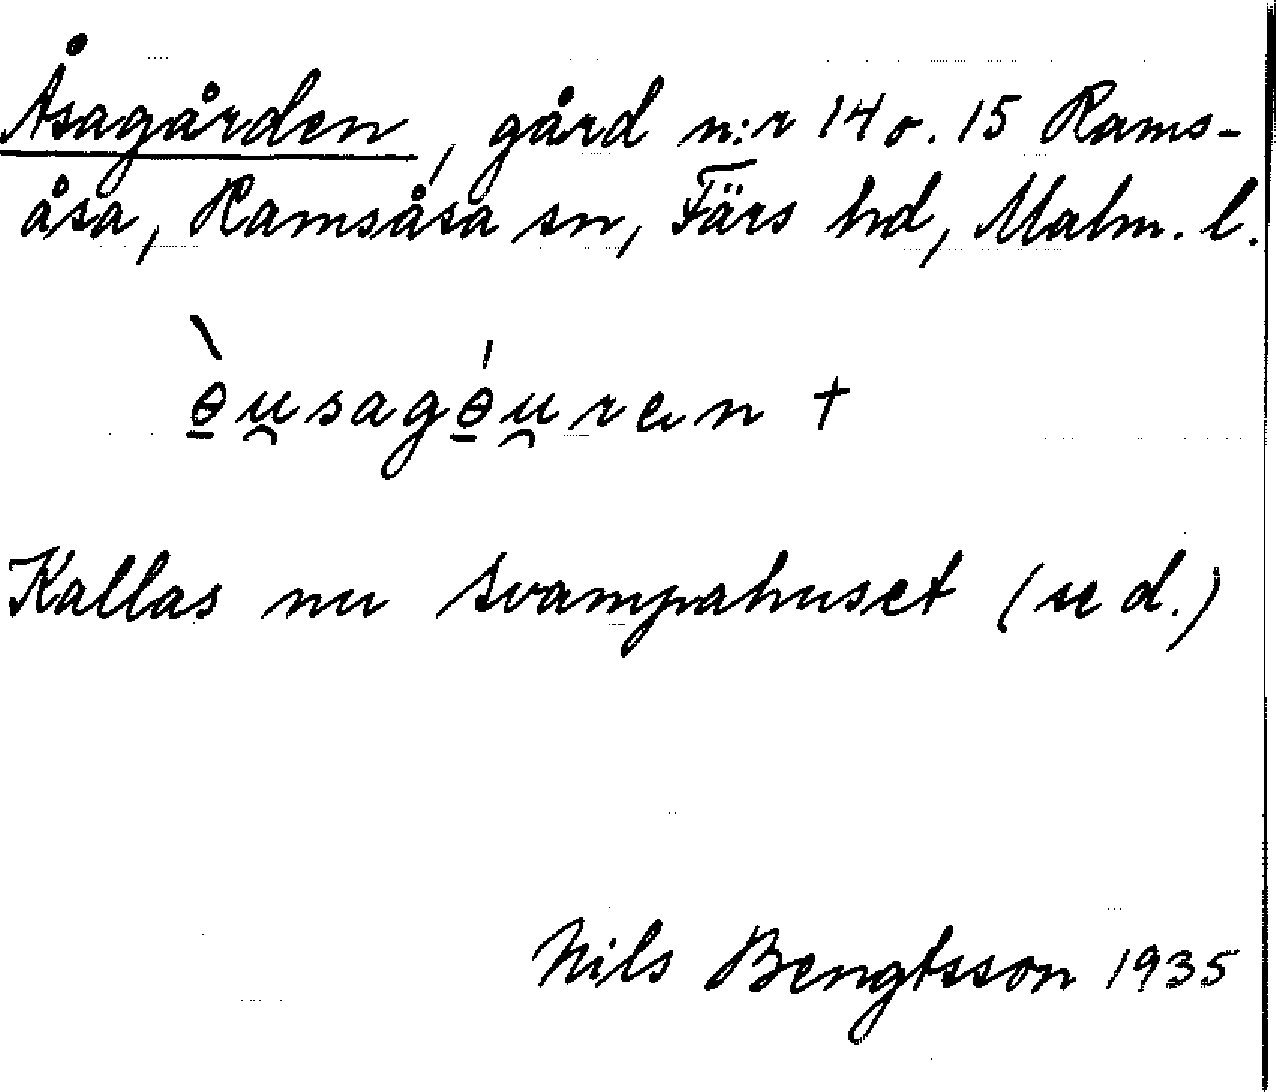 Åsagården, gård n:r 14 o. 15 Rams-
åsa, Ramsåsa sn, Färs hd, Malm. l.
ɵ̠̀u̯sagɵ̠́u̯ren +
Kallas nu Svampahuset (se d.)
Nils Bengtsson 1935